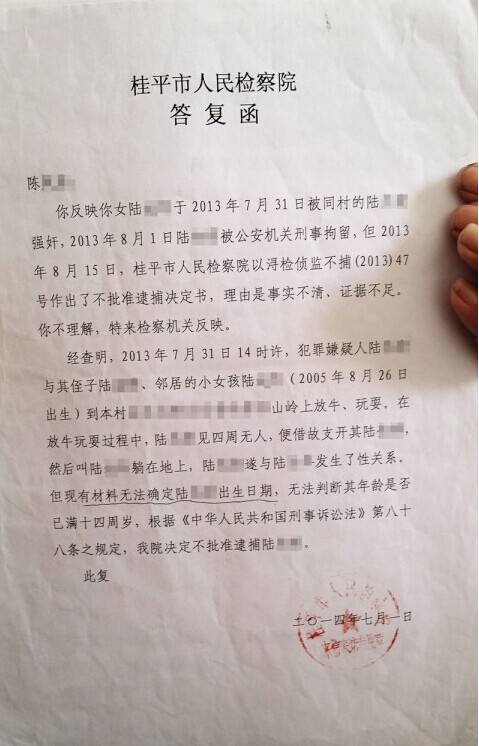 桂平市人民检察院
答复函
陈
你反映你女陆于2013年7月31日被同村的陆
强奸，2013年8月1日陆被公安机关刑事拘留，但2013
年8月15日，桂平市人民检察院以浔检侦监不捕(2013)47
号作出了不批准逮捕决定书，理由是事实不清、证据不足。
你不理解，特来检察机关反映。
经查明，2013年7月31日14时许，犯罪嫌疑人陆
与其侄子陆、邻居的小女孩陆（2005年8月26日
出生）到本村山岭上放牛、玩耍。在
放牛玩耍过程中，陆见四周无人，便借故支开其陆，
然后叫陆躺在地上，陆遂与陆发生了性关系。
但现有材料无法确定陆出生日期，无法判断其年龄是否
已满十四周岁，根据《中华人民共和国刑事诉讼法》第八十
八条之规定，我院决定不批准逮捕陆。
此复
二〇一四年七月一日